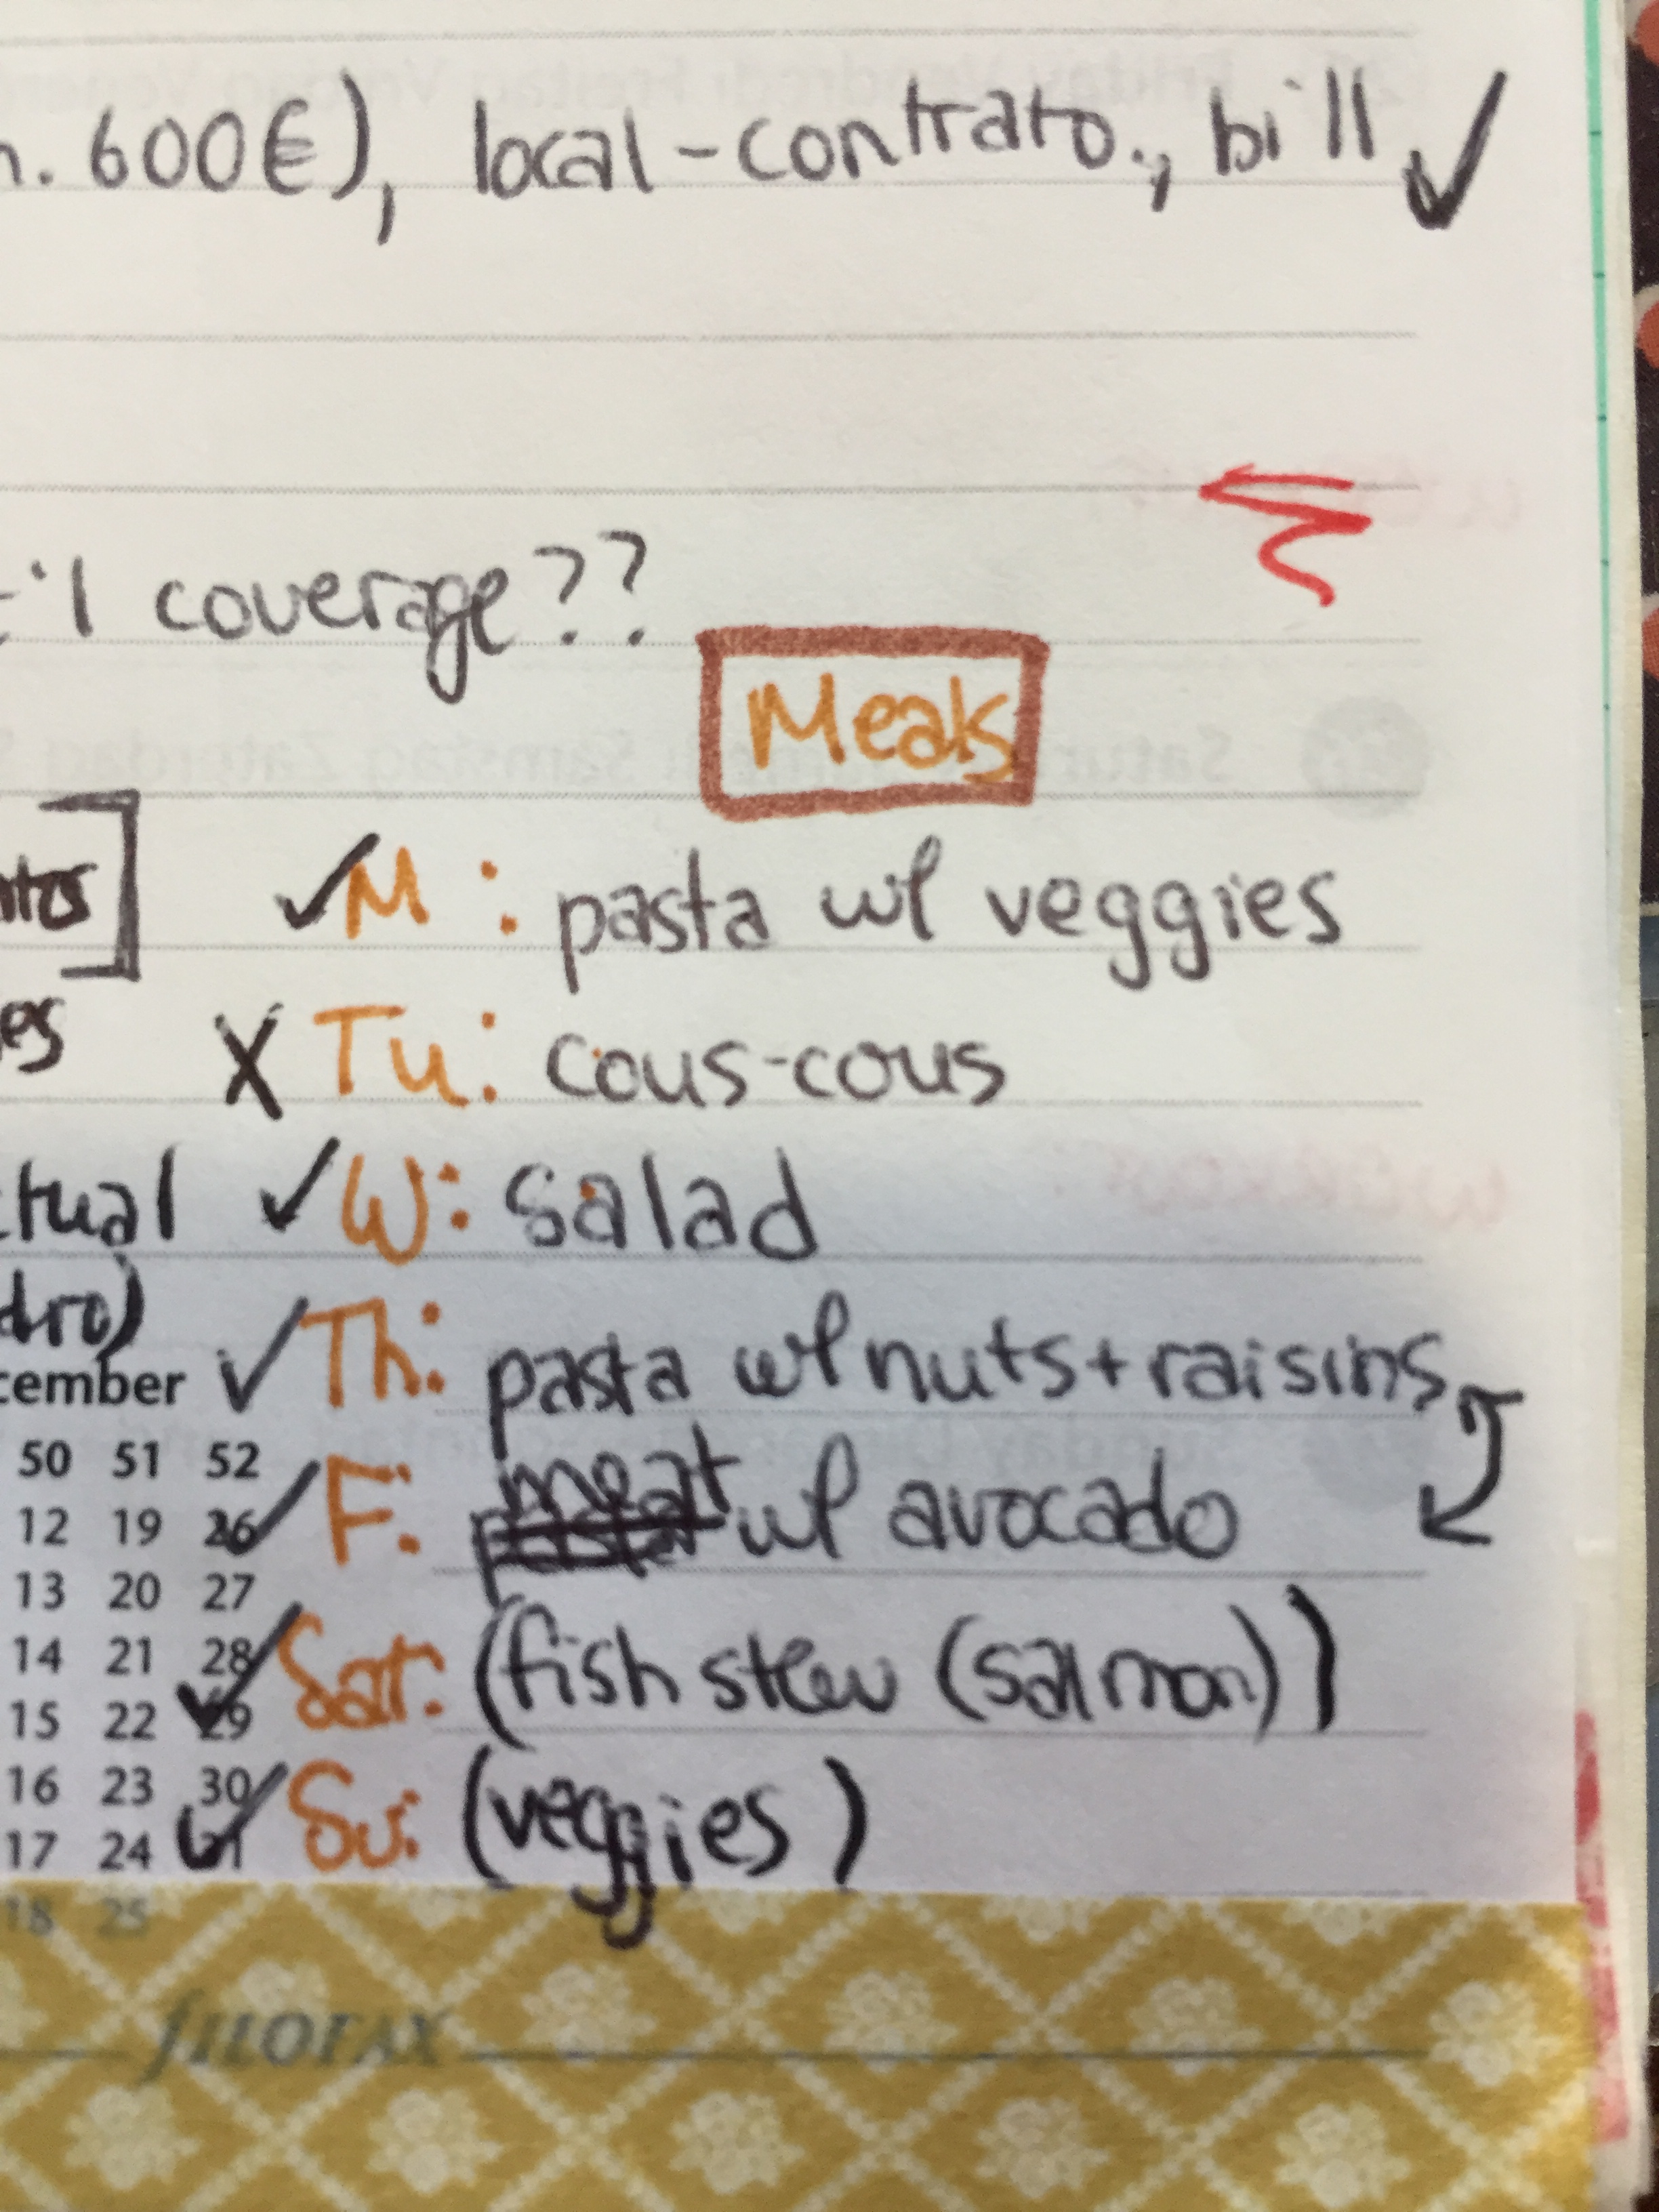 600€), local-contrato., bill ✓
coverage??
Meals
✓ M: pasta w/ veggies
X Tu: cous-cous
✓ W: salad
✓ Th: pasta w/ nuts + raisins
✓ F: meat w/ avocado
✓ Sat: (fish stew (salmon))
✓ Su: (veggies)
50 51 52
12 19 26
13 20 27
14 21 28
15 22 29
16 23 30
17 24 31
18 25
filofax